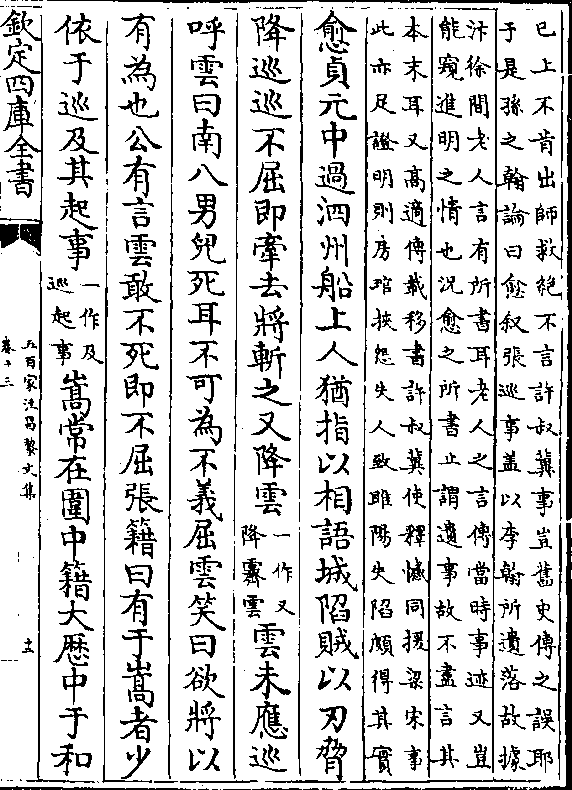 已上不肯出師救絶不言許叔冀事豈舊史傳之誤耶
于是孫之翰論曰愈叙張巡事盖以李翰所遺落故據
汴徐間老人言有所書耳老人之言傳當時事迹又豈
能窺進明之情也況愈之所書止謂遺事故不盡言其
本末耳又髙適傳載移書許叔冀使釋憾同援梁宋事
此亦足證明則房琯挾怨失人致睢陽失陷頗得其實
愈貞元中過泗州船上人猶指以相語城陷賊以刃脅
降巡巡不屈即牽去將斬之又降雲一作又降霽雲雲未應巡
呼雲曰南八男兒死耳不可為不義屈雲笑曰欲將以
有為也公有言雲敢不死即不屈張籍曰有于嵩者少
依于巡及其起事一作及巡起事嵩常在圍中籍大歴中于和
欽定四庫全書
五百家注昌黎文集
卷十三